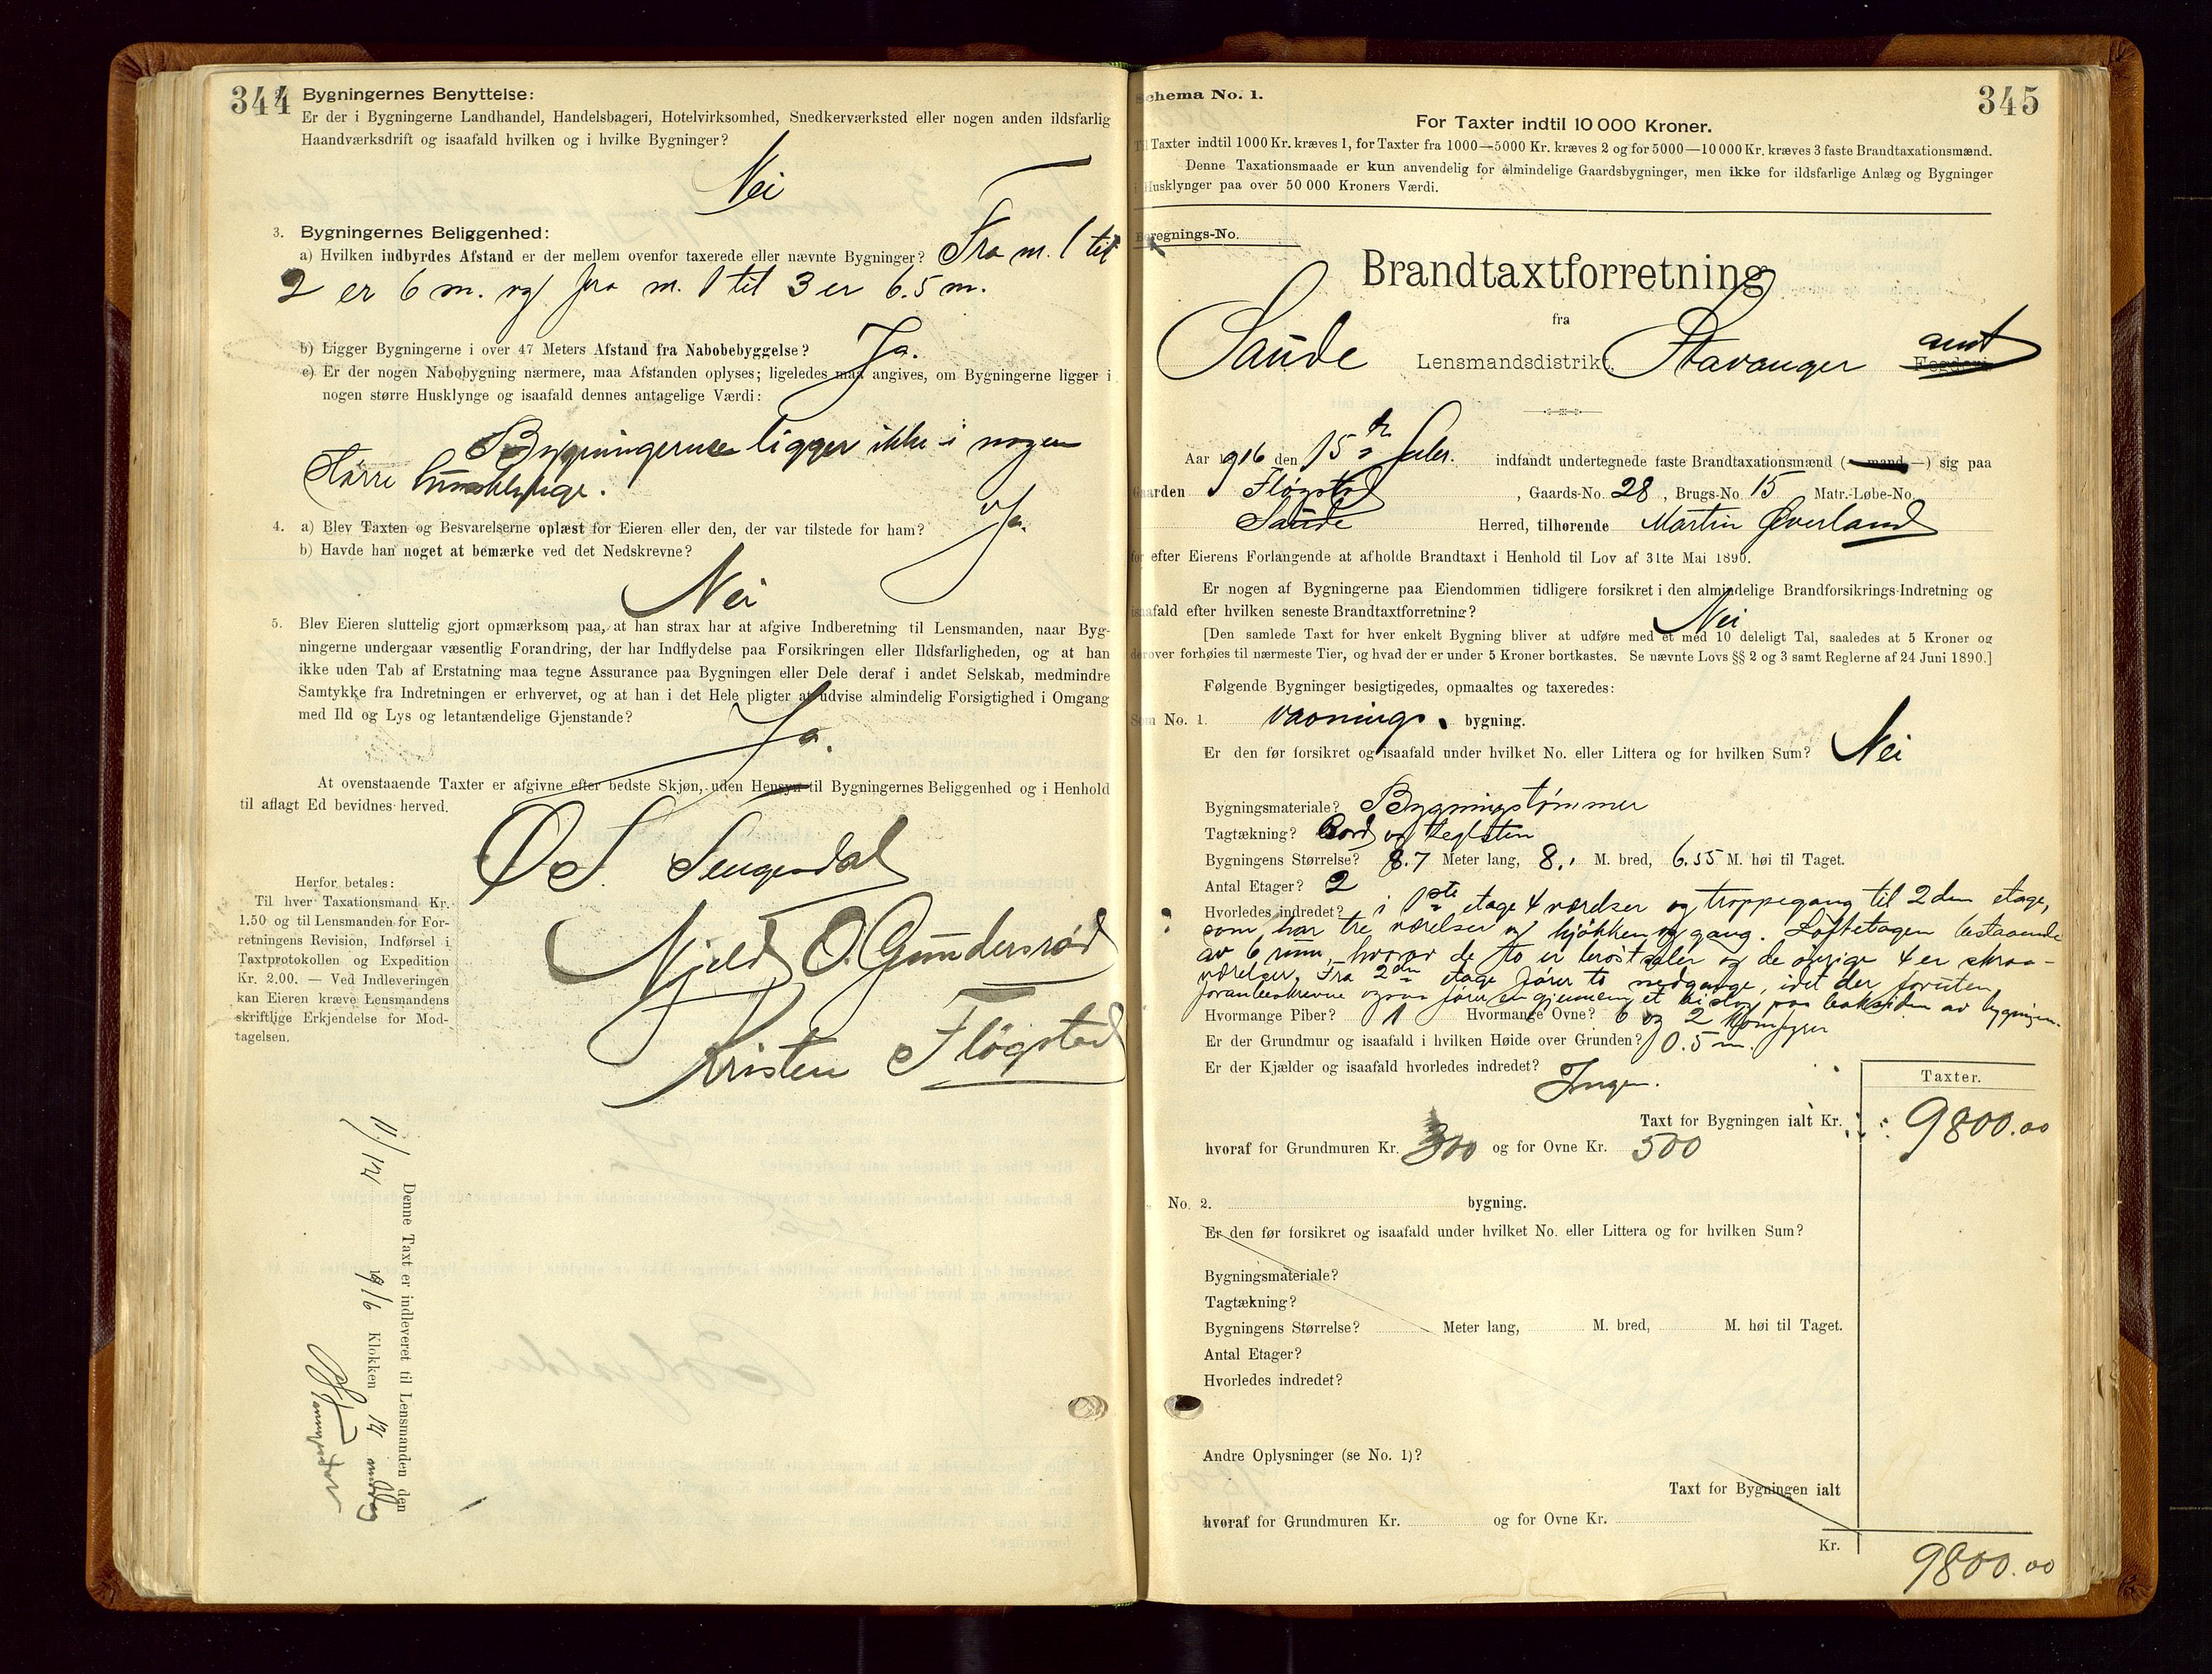 344
Bygningernes Benyttelse:
Er der i Bygningerne Landhandel, Handelsbageri, Hotelvirksomhed, Snedkerværksted eller nogen anden ildsfarlig
Haandværksdrift og isaafald hvilken og i hvilke Bygninger?
Nei
3. Bygningernes Beliggenhed:
a) Hvilken indbyrdes Afstand er der mellem ovenfor taxerede eller nævnte Bygninger? Fra m. 1 til
2 er 6 m. og fra m. 1 til 3 er 6.5 m.
b) Ligger Bygningerne i over 47 Meters Afstand fra Nabobebyggelse? Ja.
c) Er der nogen Nabobygning nærmere, maa Afstanden oplyses; ligeledes maa angives, om Bygningerne ligger i
nogen større Husklynge og isaafald dennes antagelige Værdi:
Bygningerne ligger ikke i nogen
større husklynge.
4. a) Blev Taxten og Besvarelserne oplæst for Eieren eller den, der var tilstede for ham? Ja.
b) Havde han noget at bemærke ved det Nedskrevne?
Nei
5. Blev Eieren sluttelig gjort opmærksom paa, at han strax har at afgive Indberetning til Lensmanden, naar Byg-
ningerne undergaar væsentlig Forandring, der har Indflydelse paa Forsikringen eller Ildsfarligheden, og at han
ikke uden Tab af Erstatning maa tegne Assurance paa Bygningen eller Dele deraf i andet Selskab, medmindre
Samtykke fra Indretningen er erhvervet, og at han i det Hele pligter at udvise almindelig Forsigtighed i Omgang
med Ild og Lys og letantændelige Gjenstande?
Ja.
At ovenstaaende Taxter er afgivne efter bedste Skjøn, uden Hensyn til Bygningernes Beliggenhed og i Henhold
til aflagt Ed bevidnes herved.
Ø S. Sengendal
Njeld O. Gundersrød
Kristen Fløgstad
Herfor betales:
Til hver Taxationsmand Kr.
1.50 og til Lensmanden for For-
retningens Revision, Indførsel i
Taxtprotokollen og Expedition
Kr. 2.00. — Ved Indleveringen
kan Eieren kræve Lensmandens
skriftlige Erkjendelse for Mod-
tagelsen.
Denne Taxt er indleveret til Lensmanden den
11/12 1916 Klokken 12 middag
Schema No. 1.
345
For Taxter indtil 10 000 Kroner.
Til Taxter indtil 1000 Kr. kræves 1, for Taxter fra 1000—5000 Kr. kræves 2 og for 5000—10000 Kr. kræves 3 faste Brandtaxationsmænd.
Denne Taxationsmaade er kun anvendelig for almindelige Gaardsbygninger, men ikke for ildsfarlige Anlæg og Bygninger
i Husklynger paa over 50 000 Kroners Værdi.
Beregnings-No.
Brandtaxtforretning
fra
Saude Lensmandsdistrikt, Stavanger amt Fogderi
Aar 1916 den 15de febr. indfandt undertegnede faste Brandtaxationsmænd (— mand —) sig paa
Gaarden Fløgstad, Gaards-No. 28, Brugs-No. 15 Matr.-Løbe-No.
Saude Herred, tilhørende Martin Øverland
for efter Eierens Forlangende at afholde Brandtaxt i Henhold til Lov af 31te Mai 1890.
Er nogen af Bygningerne paa Eiendommen tidligere forsikret i den almindelige Brandforsikrings-Indretning og
isaafald efter hvilken seneste Brandtaxtforretning? Nei
[Den samlede Taxt for hver enkelt Bygning bliver at udføre med et med 10 deleligt Tal, saaledes at 5 Kroner og
derover forhøies til nærmeste Tier, og hvad der er under 5 Kroner bortkastes. Se nævnte Lovs §§ 2 og 3 samt Reglerne af 24 Juni 1890.]
Følgende Bygninger besigtigedes, opmaaltes og taxeredes:
Som No. 1. vaanings. bygning.
Er den før forsikret og isaafald under hvilket No. eller Littera og for hvilken Sum? Nei
Bygningsmateriale? Bygningstømmer
Tagtækning? Bord og teglsten
Bygningens Størrelse? 8.7 Meter lang, 8., M. bred, 6.55 M. høi til Taget.
Antal Etager? 2
Hvorledes indredet? i 1ste etage 4 værelser og troppegang til 2den etage,
som har tre værelser og kjøkken og gang. Loftetagen bestaaende
av 6 rum, hvorav de to er kvistsaler og de øvrige 4 er skraa-
værelser. Fra 2den etage fører to nedgange, idet der foruten
foranbeskrevne ogsaa fører en gjennem et bislag paa baksiden av bygningen.
Hvormange Piber? 1 Hvormange Ovne? 6 og 2 komfyrer
Er der Grundmur og isaafald i hvilken Høide over Grunden? 0.5 m.
Er der Kjælder og isaafald hvorledes indredet? Ingen.
Taxter.
Taxt for Bygningen ialt Kr. 9800.00
hvoraf for Grundmuren Kr. 300 og for Ovne Kr. 500
No. 2. bygning.
Er den før forsikret og isaafald under hvilket No. eller Littera og for hvilken Sum?
Bygningsmateriale?
Tagtækning?
Bygningens Størrelse? Meter lang, M. bred, M. høi til Taget.
Antal Etager?
Hvorledes indredet?
Andre Oplysninger (se No. 1)?
Taxt for Bygningen ialt
hvoraf for Grundmuren Kr. og for Ovne Kr.
Kr. 9800.00